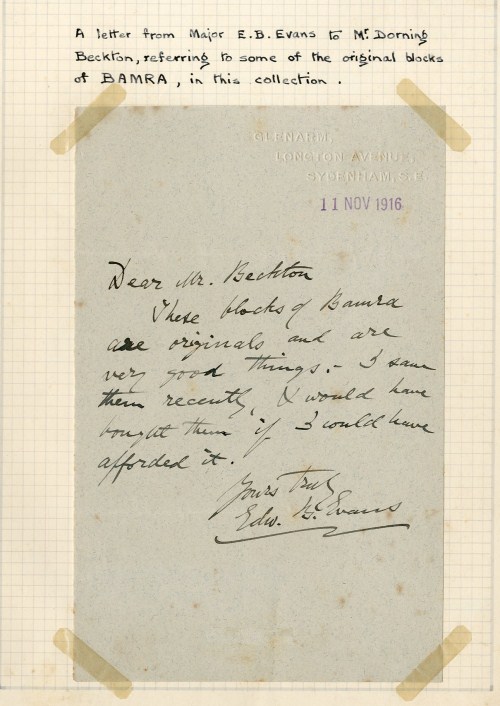 A letter from Major E.B. Evans to Mr. Dorning
Beckton, referring to some of the original blocks
of BAMRA, in this collection.
GLENARM,
LONGTON AVENUE,
SYDENHAM, S.E.
11 NOV 1916
Dear Mr. Beckton
These blocks of Bamra
are originals and are
very good things. - I saw
them recently, & would have
bought them if I could have
afforded it.
Yours Truly
Edw. B. Evans